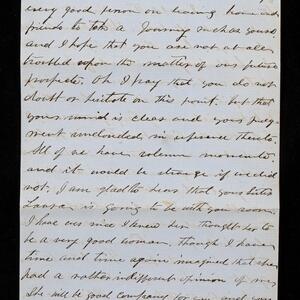 every good person on leaving home and
friends to take a Journey such as yours,
and I hope that you are not at all
troubled upon the matter of our future
prospects. Oh I pray that you do not
doubt or hesitate on this point. but that
your mind is clear and your judg
ment unclouded, in reference thereto.
All of us have solemn moments
and it would be strange if we did
not. I am glad to hear that your sister
Laura is going to be with you soon.
I have ever since I knew her thought her to
be a very good woman, though I have
time and time again imagined that she
had a rather indifferent opinion of me.
She will be good company for you and